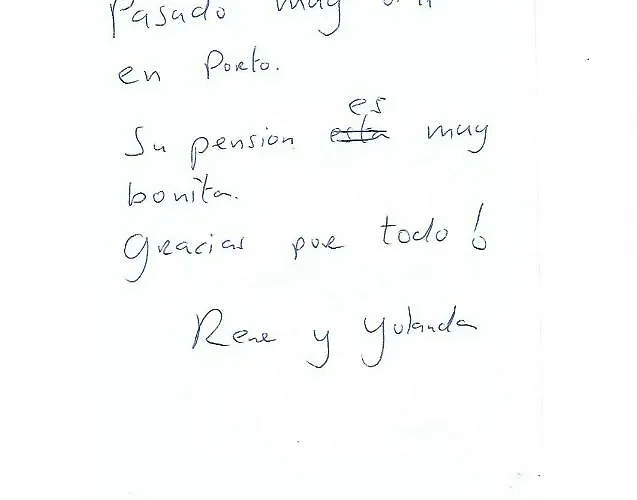 Pasado muy
en Porto.
es
Su pension esta muy
bonita.
Gracias por todo!
Rene y Yolanda